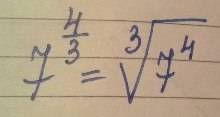 7^{\frac{4}{3}} = \sqrt[3]{7^4}